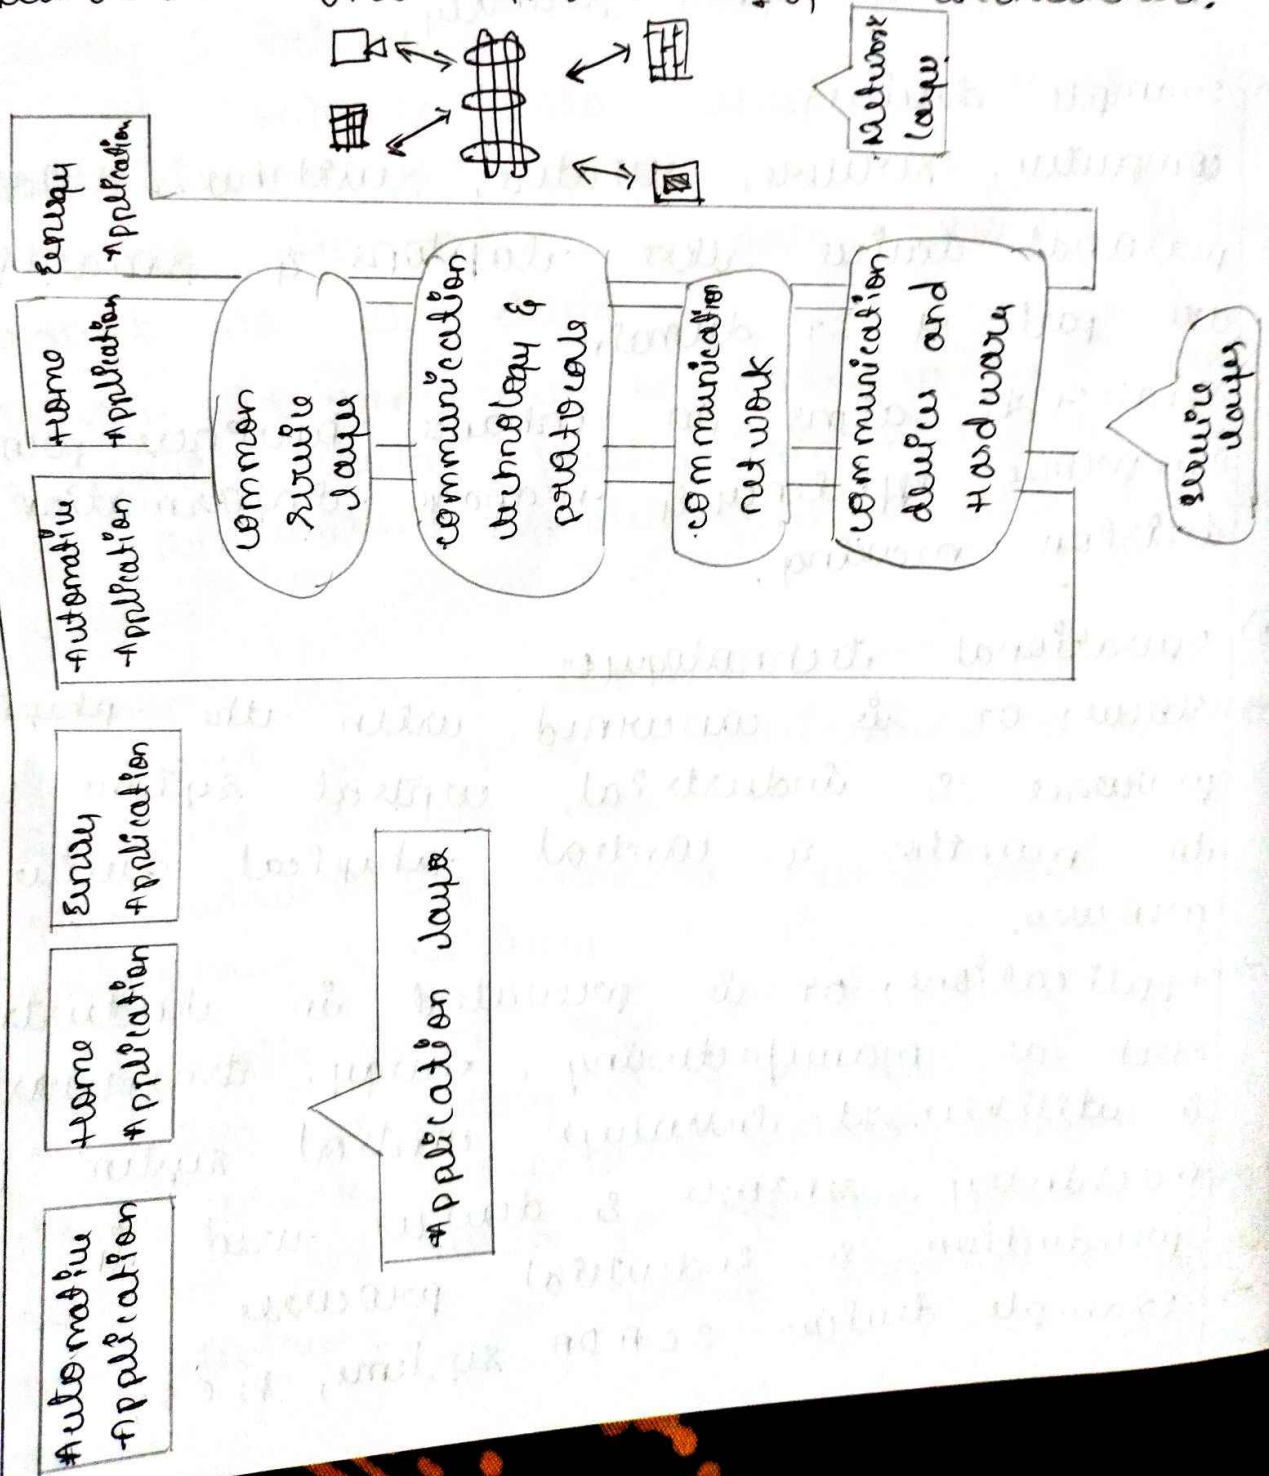 Automative
Application
Home
Application
Energy
Application
Application layer
Automative
Application
Home
Application
Energy
Application
common
service
layer
communication
technology &
protocols
communication
network
communication
device and
Hardware
Service
layer
Network
layer